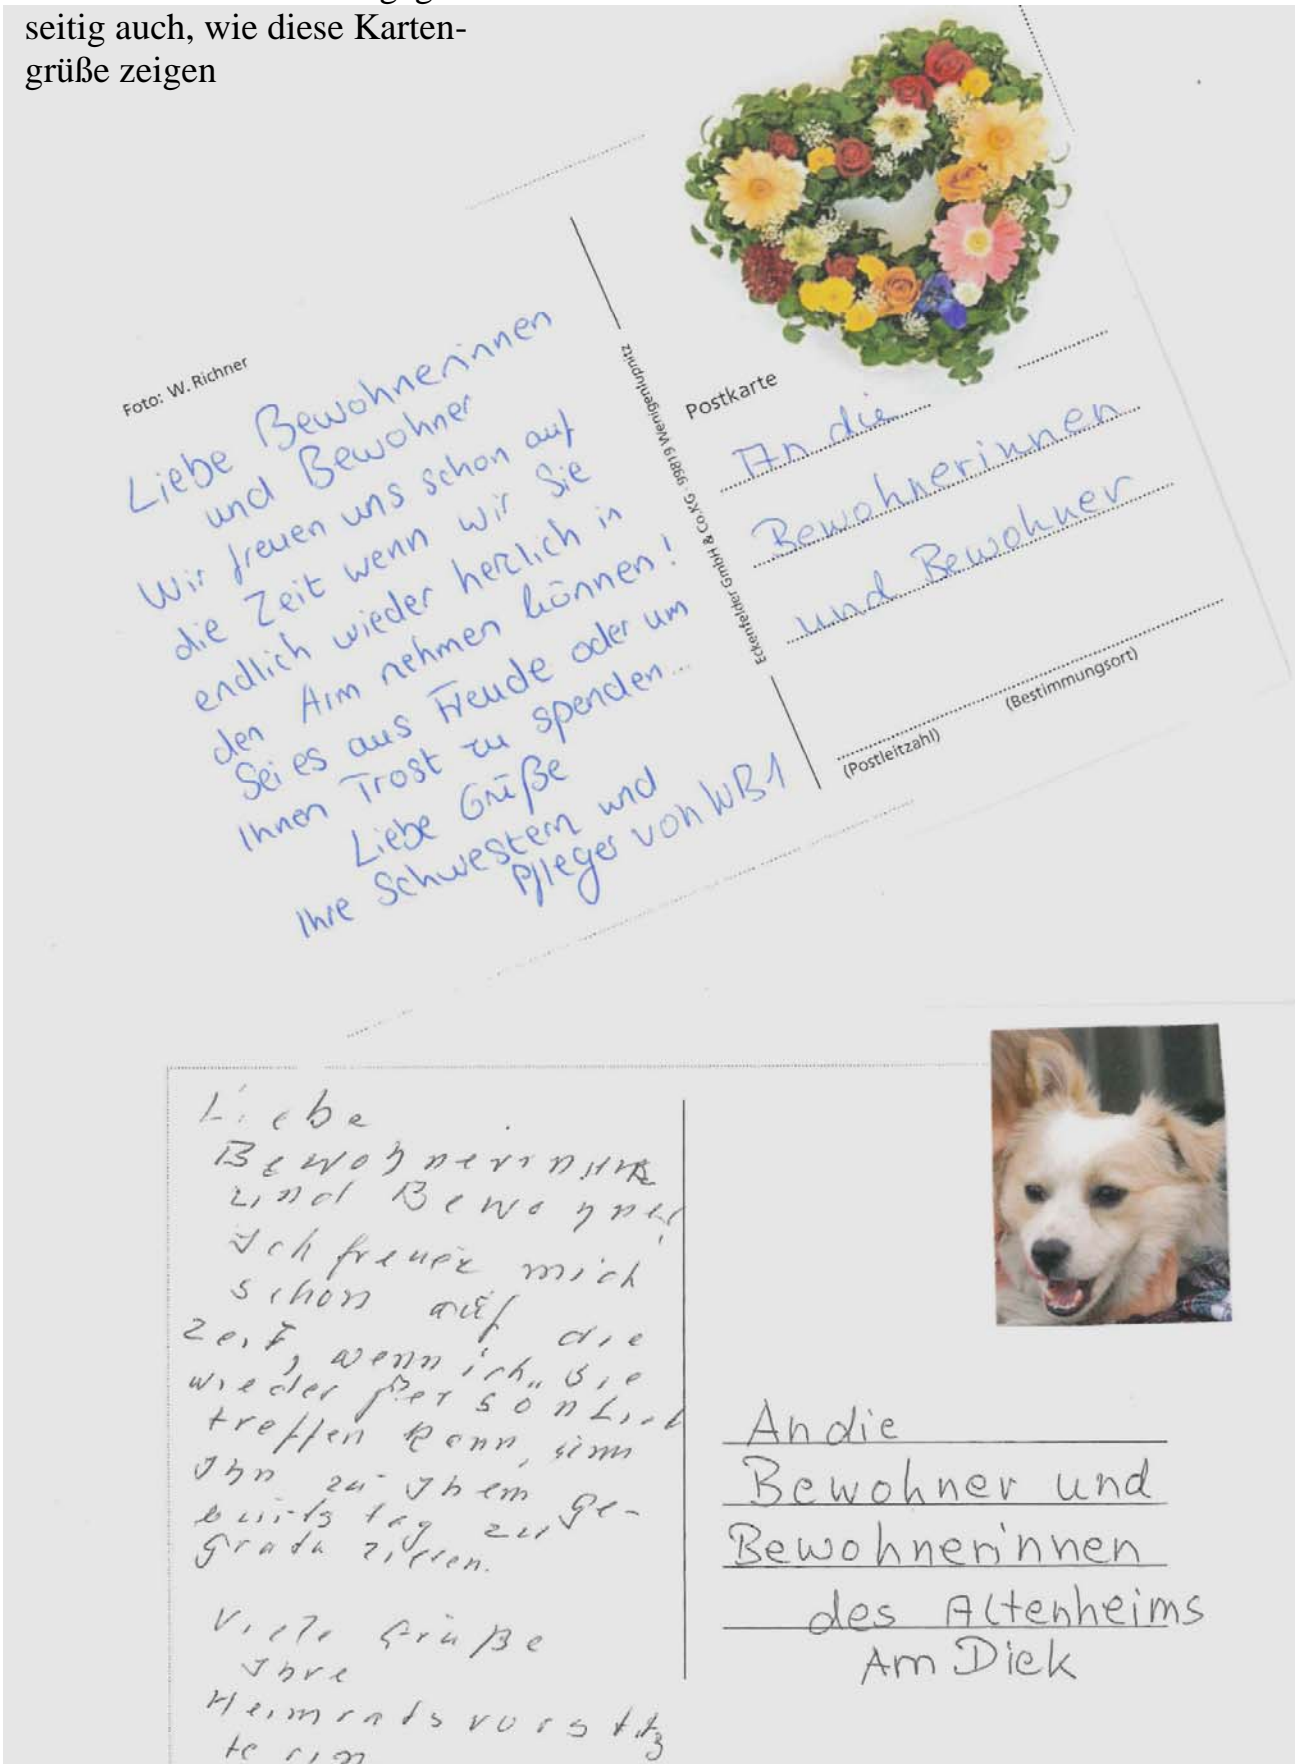 seitig auch, wie diese Karten-
grüße zeigen
Foto: W. Richner
Liebe Bewohnerinnen
und Bewohner
Wir freuen uns schon auf
die Zeit wenn wir Sie
endlich wieder herzlich in
den Arm nehmen können!
Sei es aus Freude oder um
Ihnen Trost zu spenden...
Liebe Grüße
Ihre Schwestern und
Pfleger von WB1
Eckenfelder GmbH & Co.KG · 99819 Wenigenlupnitz
Postkarte
An die
Bewohnerinnen
und Bewohner
(Bestimmungsort)
(Postleitzahl)
Liebe
Bewohnerinnen
und Bewohner,
Ich freue mich
schon auf die
Zeit, wenn ich Sie
wieder persönlich
treffen kann,
Ihn zu Ihem Ge-
burtstag zu
Viele Grüße
Ihre
An die
Bewohner und
Bewohnerinnen
des Altenheims
Am Diek